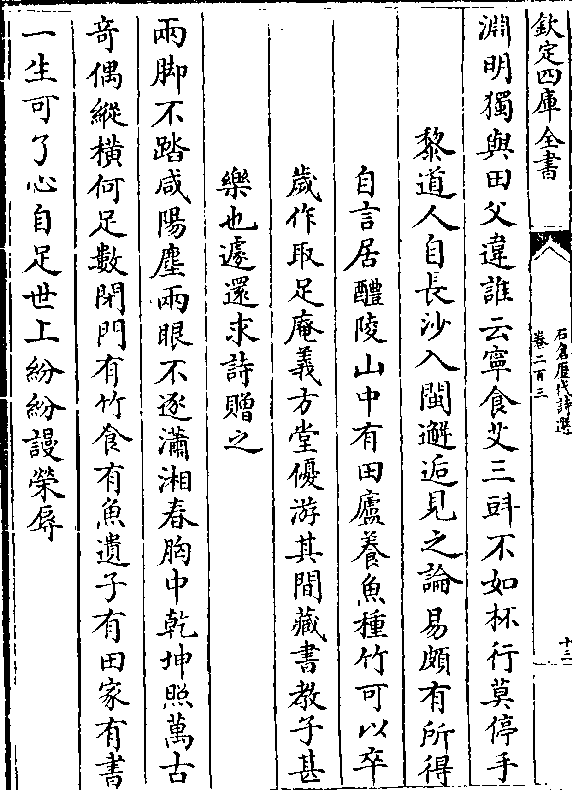 欽定四庫全書
石倉歷代詩選
卷二百三
十三
淵明獨與田父違誰云寧食艾三斗不如杯行莫停手
黎道人自長沙入閩邂逅見之論易頗有所得
自言居醴陵山中有田廬養魚種竹可以卒
歲作取足庵義方堂優游其間藏書教子甚
樂也遽還求詩贈之
兩脚不踏咸陽塵兩眼不逐瀟湘春胸中乾坤照萬古
竒偶縱橫何足數閉門有竹食有魚遺子有田家有書
一生可了心自足世上紛紛謾榮辱